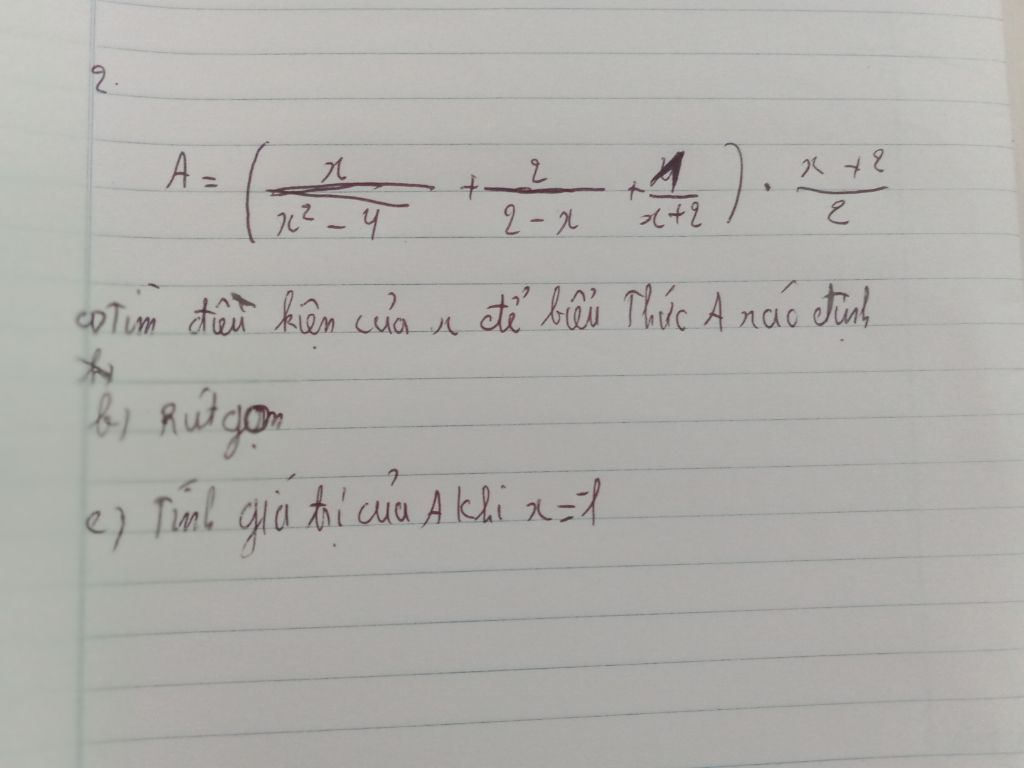 2.
A = ( x / (x² - 4) + 2 / (2 - x) + 1 / (x+2) ) . (x + 2) / 2
a) Tìm điều kiện của x để biểu thức A xác định
b) Rút gọn
c) Tính giá trị của A khi x = -1